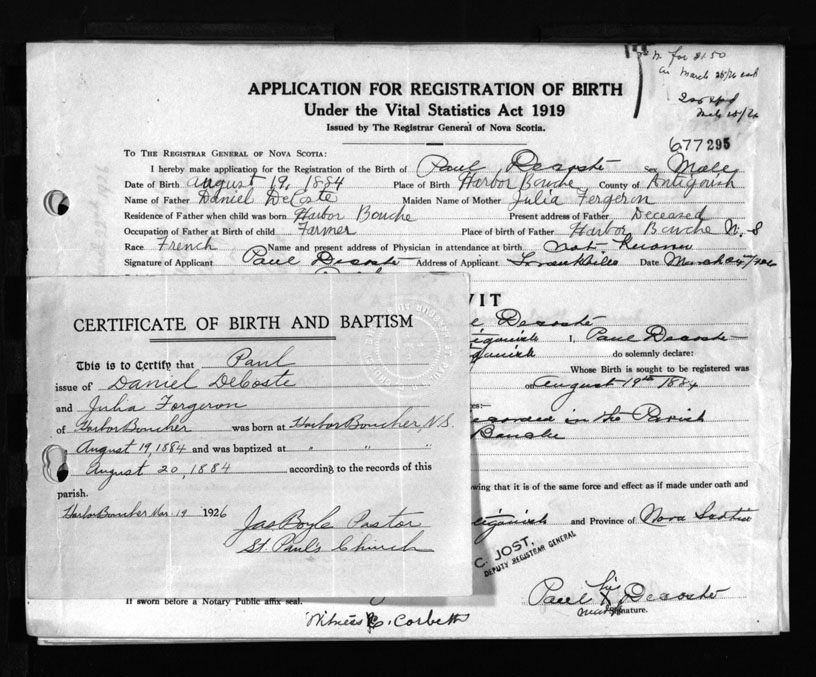 APPLICATION FOR REGISTRATION OF BIRTH
Under the Vital Statistics Act 1919
Issued by The Registrar General of Nova Scotia.
for $1.50
on March 25/26
677295
TO THE REGISTRAR GENERAL OF NOVA SCOTIA:
I hereby make application for the Registration of the Birth of Paul Decoste Sex Male
Date of Birth August 19, 1884 Place of Birth Harbor Bouche County of Antigonish
Name of Father Daniel DeCoste Maiden Name of Mother Julia Fergeron
Residence of Father when child was born Harbor Bouche Present address of Father Deceased
Occupation of Father at Birth of child Farmer Place of birth of Father Harbor Bouche N. S
Race French Name and present address of Physician in attendance at birth not known
Signature of Applicant Paul Decoste Address of Applicant Frankville Date March
VIT
Decoste
I, Paul Decoste
do solemnly declare:
Whose Birth is sought to be registered was
on August 19th 1884
in the Parish
Bouche
wing that it is of the same force and effect as if made under oath and
and Province of Nova Scotia
C. JOST,
DEPUTY REGISTRAR GENERAL
Paul his X Decoste
mark Signature.
If sworn before a Notary Public affix seal.
Witness C. Corbett
CERTIFICATE OF BIRTH AND BAPTISM
This is to Certify that Paul
issue of Daniel DeCoste
and Julia Forgeron
of Harbor Boucher was born at Harbor Boucher, N.S.
August 19, 1884 and was baptized at " " "
August 20, 1884 according to the records of this
parish.
Harbor Boucher Mar. 19 1926
Jas Boyle Pastor
St. Paul's Church